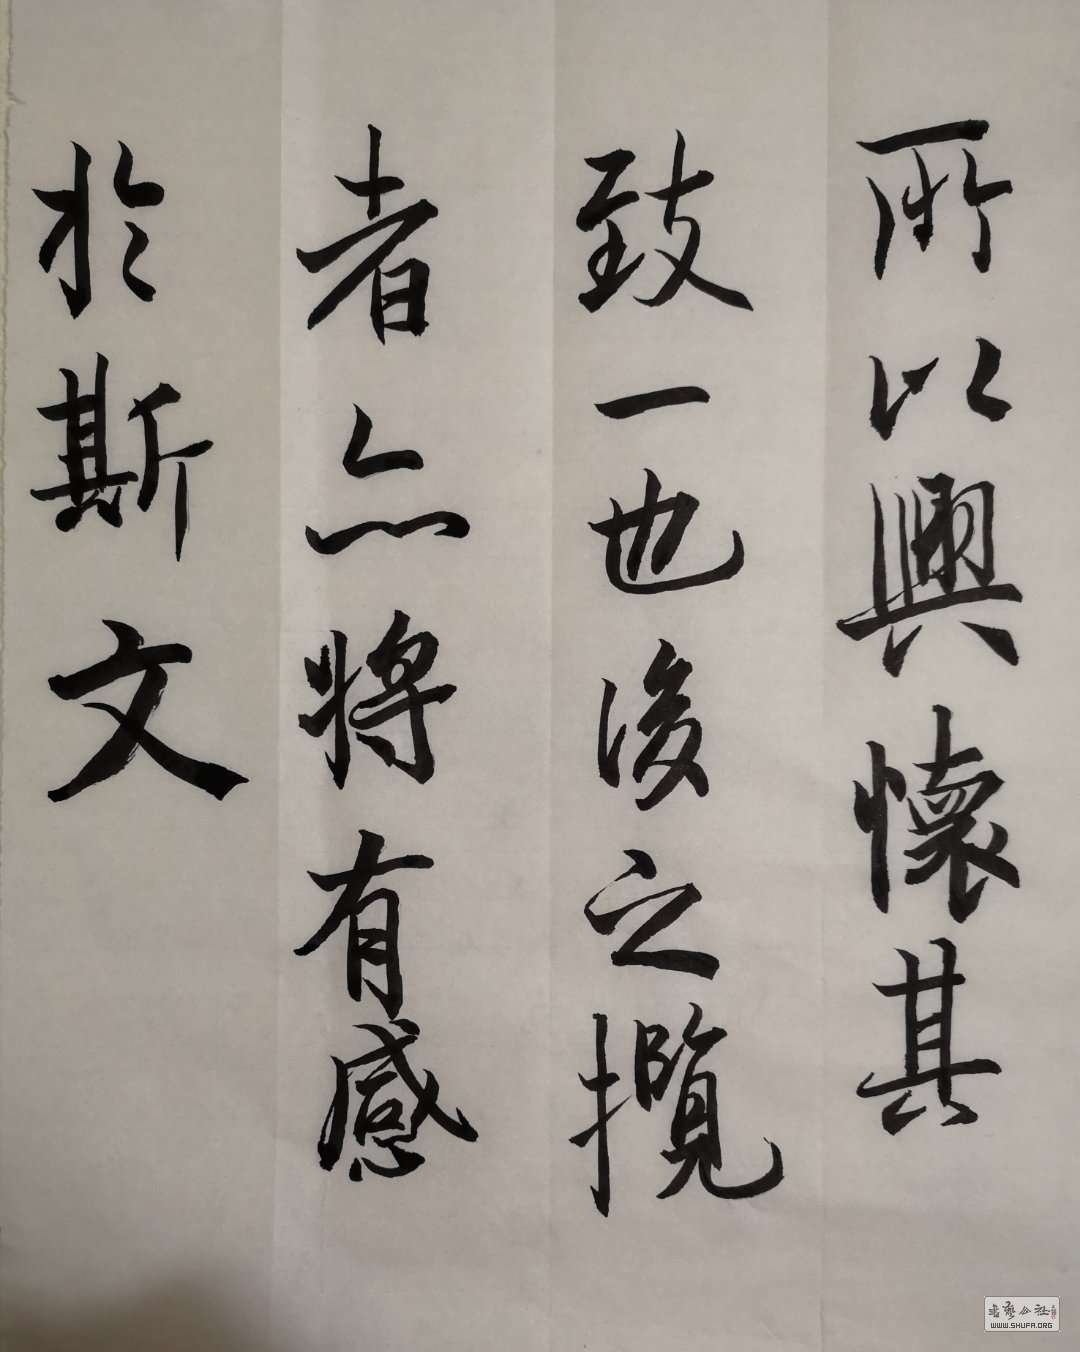 所以興懷其
致一也後之攬
者亦將有感
於斯文
書藝公社
WWW.SHUFA.ORG